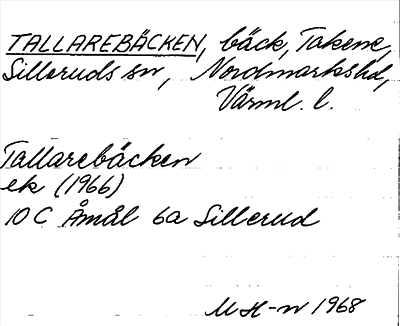 TALLAREBÄCKEN, bäck, Takene,
Silleruds sn, Nordmarkshd,
Värml. l.
Tallarebäcken
ek (1966)
10 C Åmål 6a Sillerud
M H-n 1968